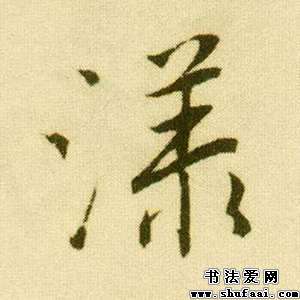 漾
书法爱网
www.shufaai.com